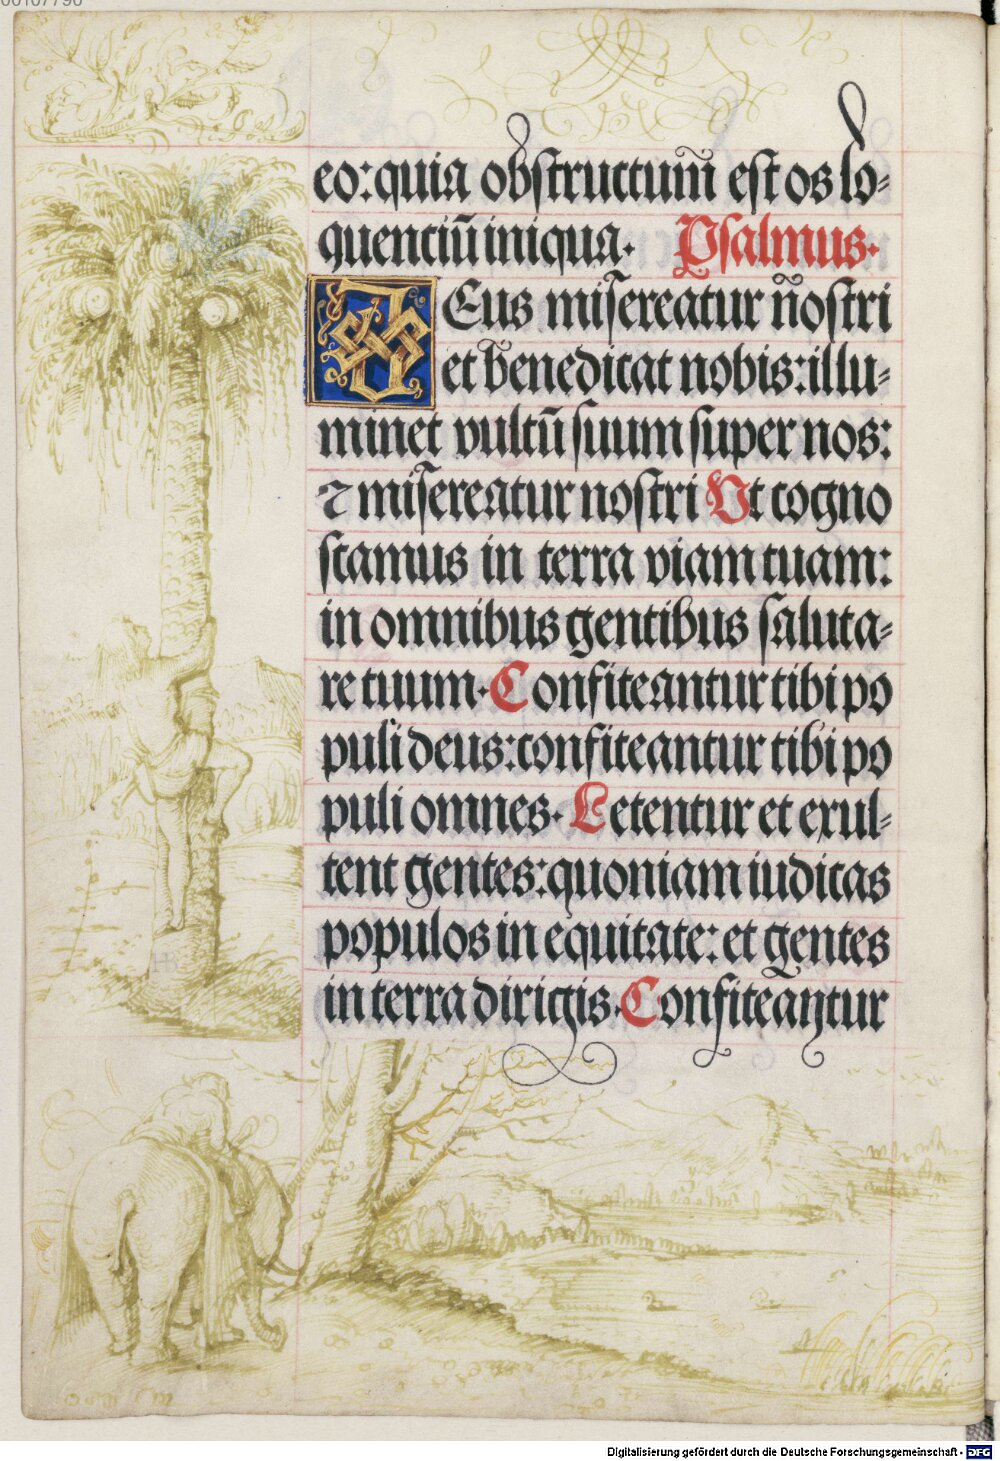 00107790
eo: quia obstructum̄ est os lo-
quenciū iniqua. Psalmus.
DEus misereatur nostri
et benedicat nobis: illu-
minet vultū suum super nos:
⁊ misereatur nostri Ut cogno
scamus in terra viam tuam:
in omnibus gentibus saluta-
re tuum. Confiteantur tibi po
puli deus: confiteantur tibi po
puli omnes. Letentur et exul-
tent gentes: quoniam iudicas
populos in equitate: et gentes
in terra dirigis. Confiteantur
HB
Digitalisierung gefördert durch die Deutsche Forschungsgemeinschaft - DFG